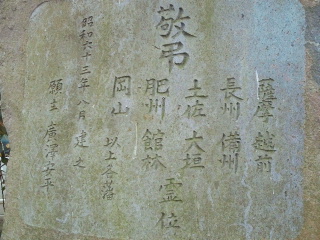 敬弔
薩摩 越前
長州 備州
土佐 大垣
肥州 館林
岡山 以上各藩
霊位
昭和六十三年八月建之
願主 廣澤安平